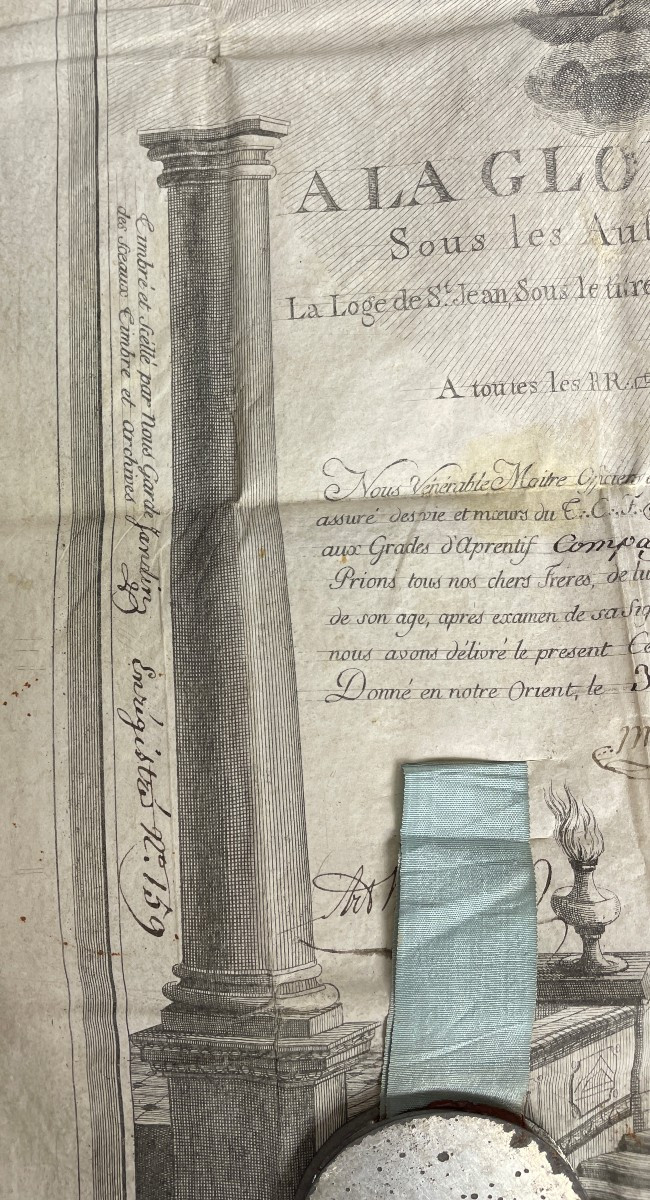 A LA GLO
Sous les Au
La Loge de St. Jean, Sous le titre
A toutes les RR
Nous Vénérable Maitre Officiers
assuré des vie et mœurs du T.·.C.·.F.·.
aux Grades d'Aprentif Compa
Prions, tous nos chers Freres, de lu
de son age, apres examen de sa Sig
nous avons délivré le present Ce
Donné en notre Orient, le 3
Timbré et Scéllé par Nous Garde
des Sceaux Timbre et archives
Jandin
Enrégistré N.º 159
Art